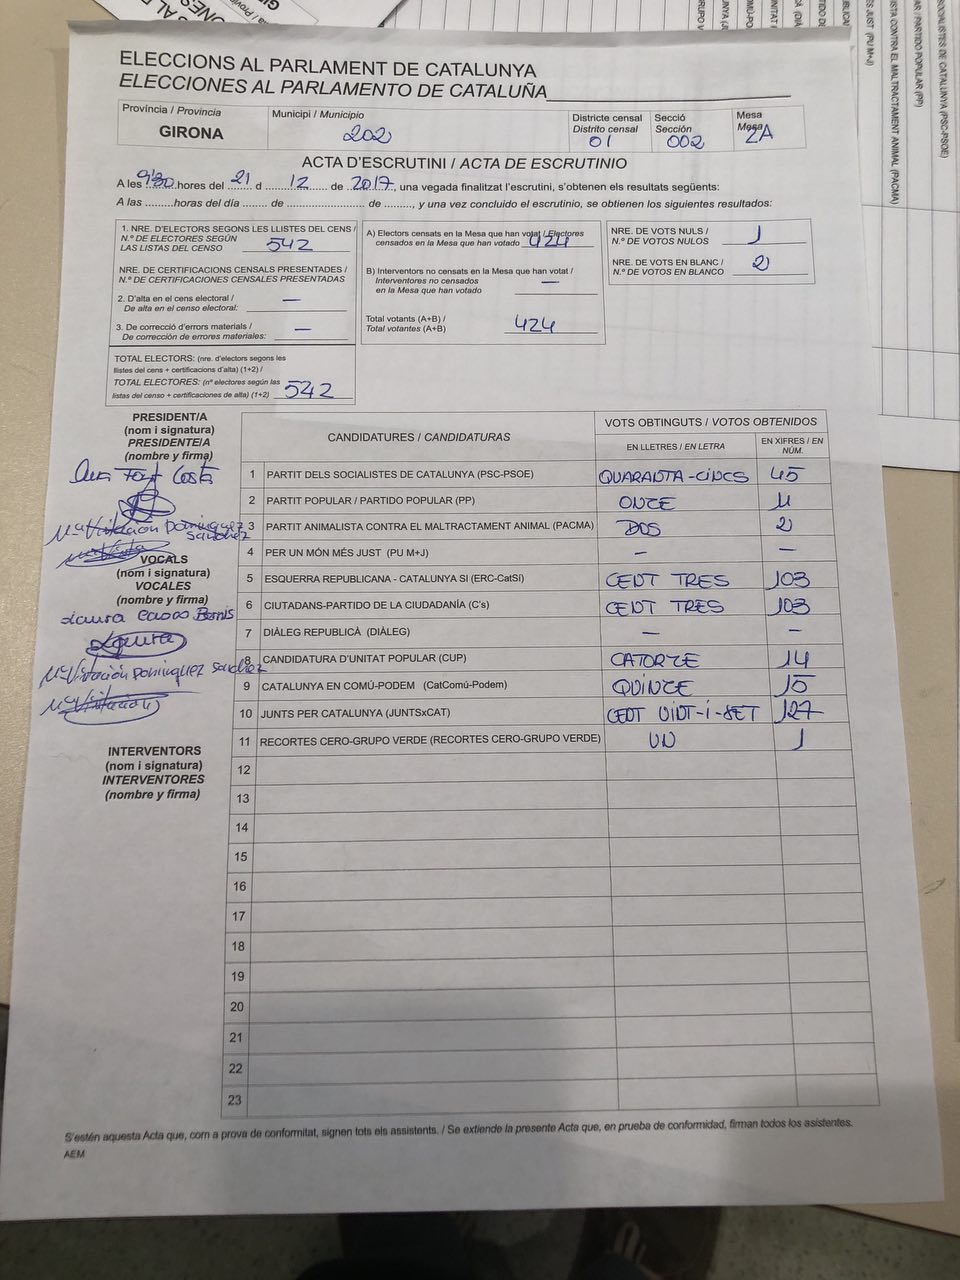 ELECCIONS AL PARLAMENT DE CATALUNYA
ELECCIONES AL PARLAMENTO DE CATALUÑA
Província / Provincia
GIRONA
Municipi / Municipio
202
Districte censal
Distrito censal
01
Secció
Sección
002
Mesa
Mesa
2A
ACTA D'ESCRUTINI / ACTA DE ESCRUTINIO
A les 9'30 hores del 21 d 12 de 2017, una vegada finalitzat l'escrutini, s'obtenen els resultats següents:
A las ......... horas del día ........ de .......................... de ........., y una vez concluido el escrutinio, se obtienen los siguientes resultados:
1. NRE. D'ELECTORS SEGONS LES LLISTES DEL CENS /
N.º DE ELECTORES SEGÚN
LAS LISTAS DEL CENSO 542
NRE. DE CERTIFICACIONS CENSALS PRESENTADES /
N.º DE CERTIFICACIONES CENSALES PRESENTADAS
2. D'alta en el cens electoral /
De alta en el censo electoral: —
3. De correcció d'errors materials /
De corrección de errores materiales: —
TOTAL ELECTORS: (nre. d'electors segons les
llistes del cens + certificacions d'alta) (1+2) /
TOTAL ELECTORES: (nº electores según las
listas del censo + certificaciones de alta) (1+2) 542
A) Electors censats en la Mesa que han votat / Electores
censados en la Mesa que han votado 424
B) Interventors no censats en la Mesa que han votat /
Interventores no censados
en la Mesa que han votado —
Total votants (A+B) /
Total votantes (A+B) 424
NRE. DE VOTS NULS /
N.º DE VOTOS NULOS 1
NRE. DE VOTS EN BLANC /
N.º DE VOTOS EN BLANCO 2
PRESIDENT/A
(nom i signatura)
PRESIDENTE/A
(nombre y firma)
Costa
Mª Visitación Dominguez
Sanchez
VOCALS
(nom i signatura)
VOCALES
(nombre y firma)
Laura
Laura
Mª Visitación Dominguez Sanchez
Mª Visitación
INTERVENTORS
(nom i signatura)
INTERVENTORES
(nombre y firma)
CANDIDATURES / CANDIDATURAS
VOTS OBTINGUTS / VOTOS OBTENIDOS
EN LLETRES / EN LETRA
EN XIFRES / EN
NÚM.
1 PARTIT DELS SOCIALISTES DE CATALUNYA (PSC-PSOE) QUARANTA-CINCS 45
2 PARTIT POPULAR / PARTIDO POPULAR (PP) ONZE 11
3 PARTIT ANIMALISTA CONTRA EL MALTRACTAMENT ANIMAL (PACMA) DOS 2
4 PER UN MÓN MÉS JUST (PU M+J) — —
5 ESQUERRA REPUBLICANA - CATALUNYA SI (ERC-CatSí) CENT TRES 103
6 CIUTADANS-PARTIDO DE LA CIUDADANÍA (C's) CENT TRES 103
7 DIÀLEG REPUBLICÀ (DIÀLEG) — —
8 CANDIDATURA D'UNITAT POPULAR (CUP) CATORZE 14
9 CATALUNYA EN COMÚ-PODEM (CatComú-Podem) QUINZE 15
10 JUNTS PER CATALUNYA (JUNTSxCAT) CENT VINT-I-SET 127
11 RECORTES CERO-GRUPO VERDE (RECORTES CERO-GRUPO VERDE) UN 1
12
13
14
15
16
17
18
19
20
21
22
23
S'estén aquesta Acta que, com a prova de conformitat, signen tots els assistents. / Se extiende la presente Acta que, en prueba de conformidad, firman todos los asistentes.
AEM
ES JUST (PU M+J)
ISTA CONTRA EL MALTRACTAMENT ANIMAL (PACMA)
AR / PARTIDO POPULAR (PP)
SOCIALISTES DE CATALUNYA (PSC-PSOE)